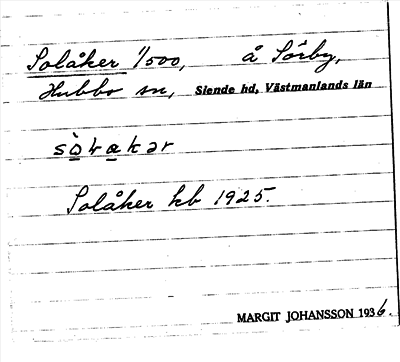 Solåker 1/500, å Sörby,
Hubbo sn, Siende hd, Västmanlands län
Solåker kb 1925.
MARGIT JOHANSSON 1936.